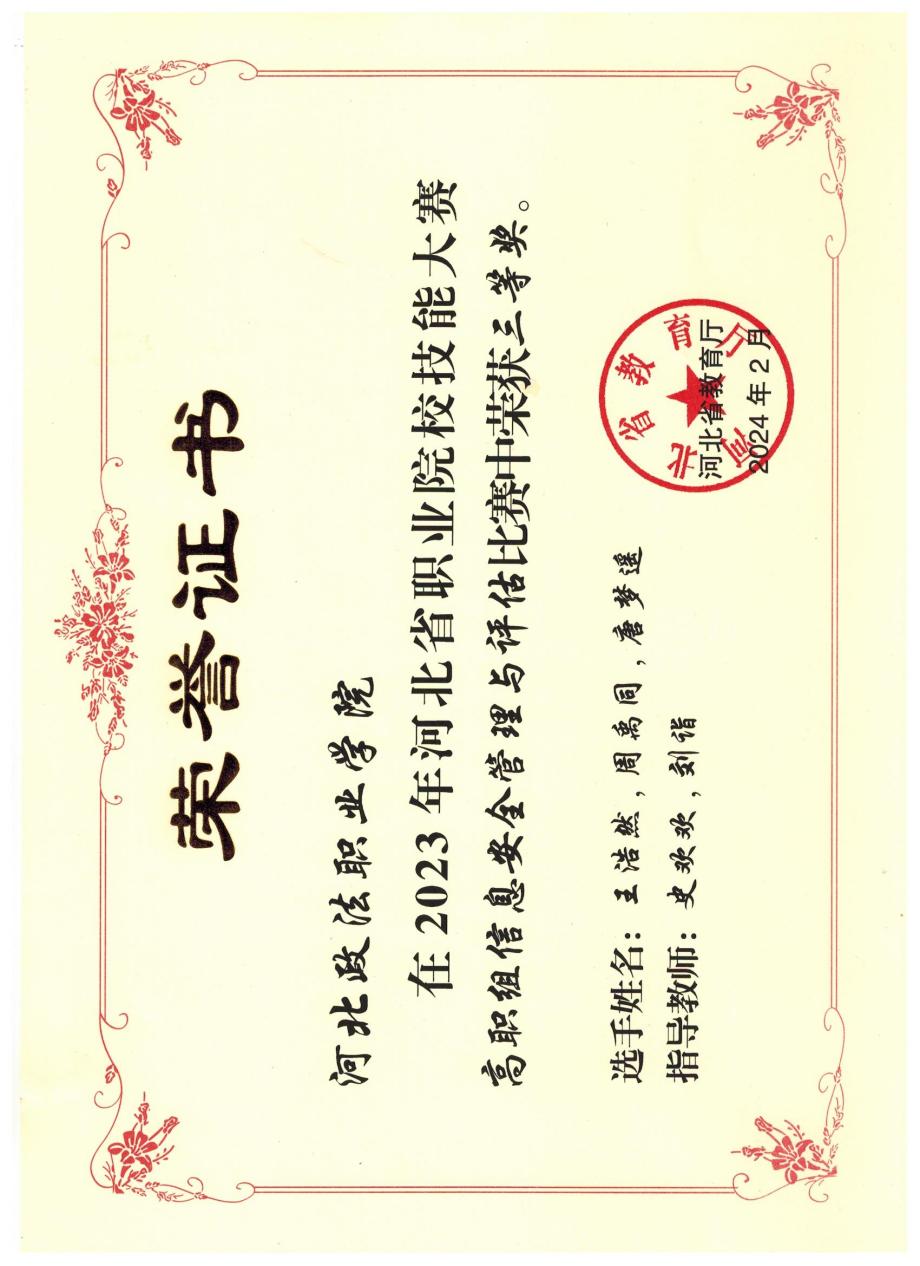 荣誉证书
河北政法职业学院
在2023年河北省职业院校技能大赛
高职组信息安全管理与评估比赛中荣获三等奖。
选手姓名：王浩然,周禹同,唐梦遥
指导教师：史欢欢,刘诣
河北省教育厅
河北省教育厅
2024年2月